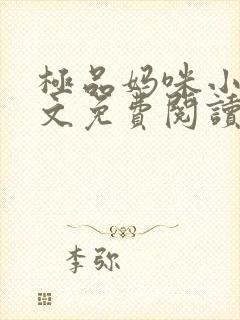 極品妈咪小
文免費閱讀
李弥